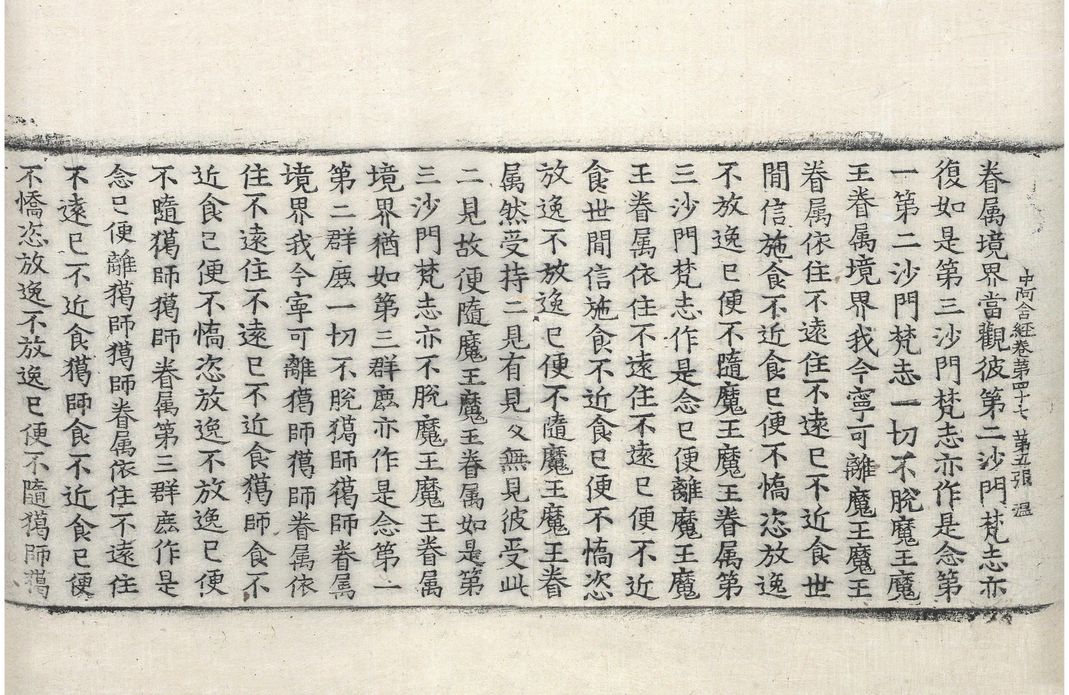 中阿含経卷第四十七 第五張 温
眷属境界當觀彼第二沙門梵志亦
復如是第三沙門梵志亦作是念第
一第二沙門梵志一切不脫魔王魔
王眷属境界我今寧可離魔王魔王
眷属依住不遠住不遠已不近食世
間信施食不近食已便不憍恣放逸
不放逸已便不隨魔王魔王眷属第
三沙門梵志作是念已便離魔王魔
王眷属依住不遠住不遠已便不近
食世間信施食不近食已便不憍恣
放逸不放逸已便不隨魔王魔王眷
属然受持二見有見及無見彼受此
二見故便隨魔王魔王眷属如是第
三沙門梵志亦不脫魔王魔王眷属
境界猶如第三群鹿亦作是念第一
第二群鹿一切不脫獦師獦師眷属
境界我今寧可離獦師獦師眷属依
住不遠住不遠已不近食獦師食不
近食已便不憍恣放逸不放逸已便
不隨獦師獦師眷属第三群鹿作是
念已便離獦師獦師眷属依住不遠住
不遠已不近食獦師食不近食已便
不憍恣放逸不放逸已便不隨獦師獦